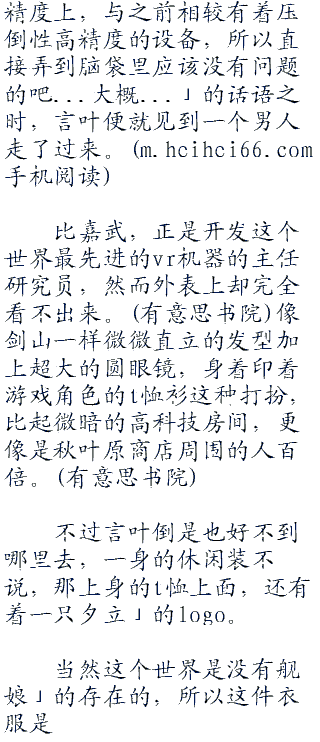 精度上，与之前相较有着压
倒性高精度的设备，所以直
接弄到脑袋里应该没有问题
的吧...大概...」的话语之
时，言叶便就见到一个男人
走了过来。(m.hcihci66.com
手机阅读)
比嘉武，正是开发这个
世界最先进的vr机器的主任
研究员，然而外表上却完全
看不出来。(有意思书院)像
剑山一样微微直立的发型加
上超大的圆眼镜，身着印着
游戏角色的t恤衫这种打扮，
比起微暗的高科技房间，更
像是秋叶原商店周围的人百
倍。(有意思书院)
不过言叶倒是也好不到
哪里去，一身的休闲装不
说，那上身的t恤上面，还有
着一只夕立」的logo。
当然这个世界是没有舰
娘」的存在的，所以这件衣
服是